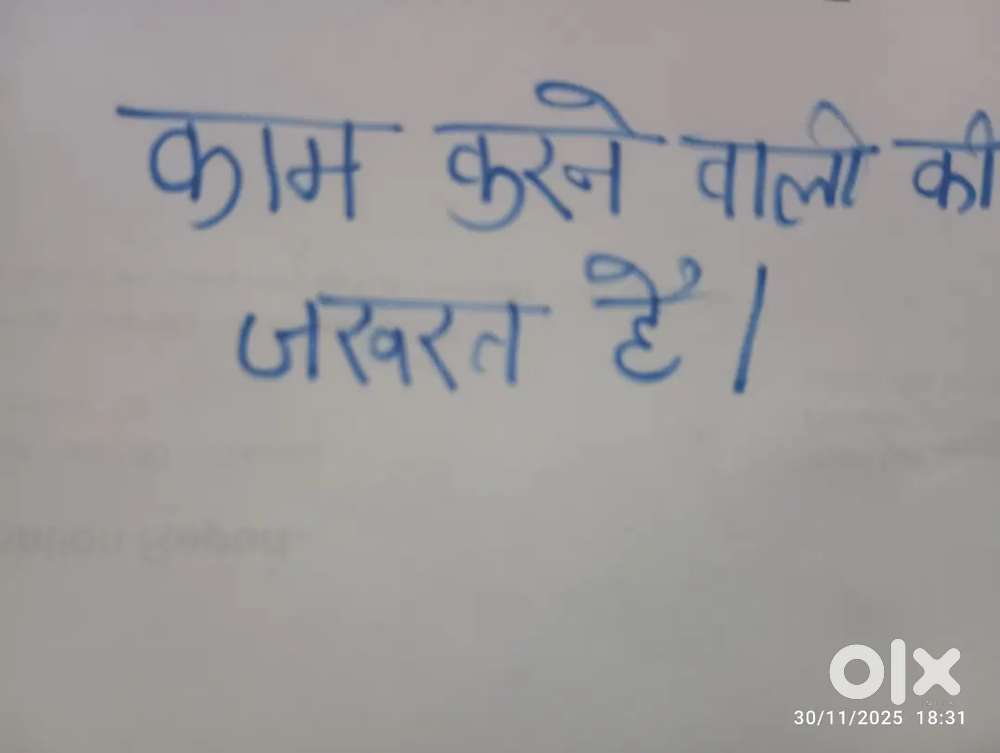 काम करने वाली की
जरुरत है।
olx
30/11/2025 18:31